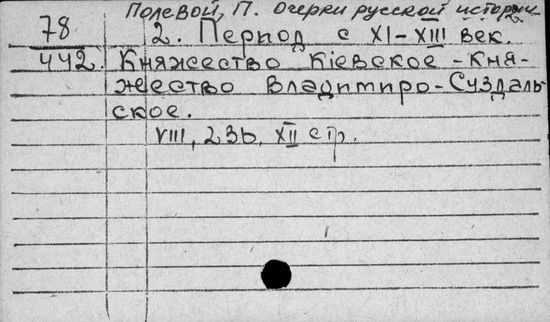 Полевой, П. Очерки русской истории
78 2. Период с XI-XIII век.
442. Княжество Кiевское-Кня-
жество Владимиро-Суздаль-
ское.
VIII, 236, XII стр.